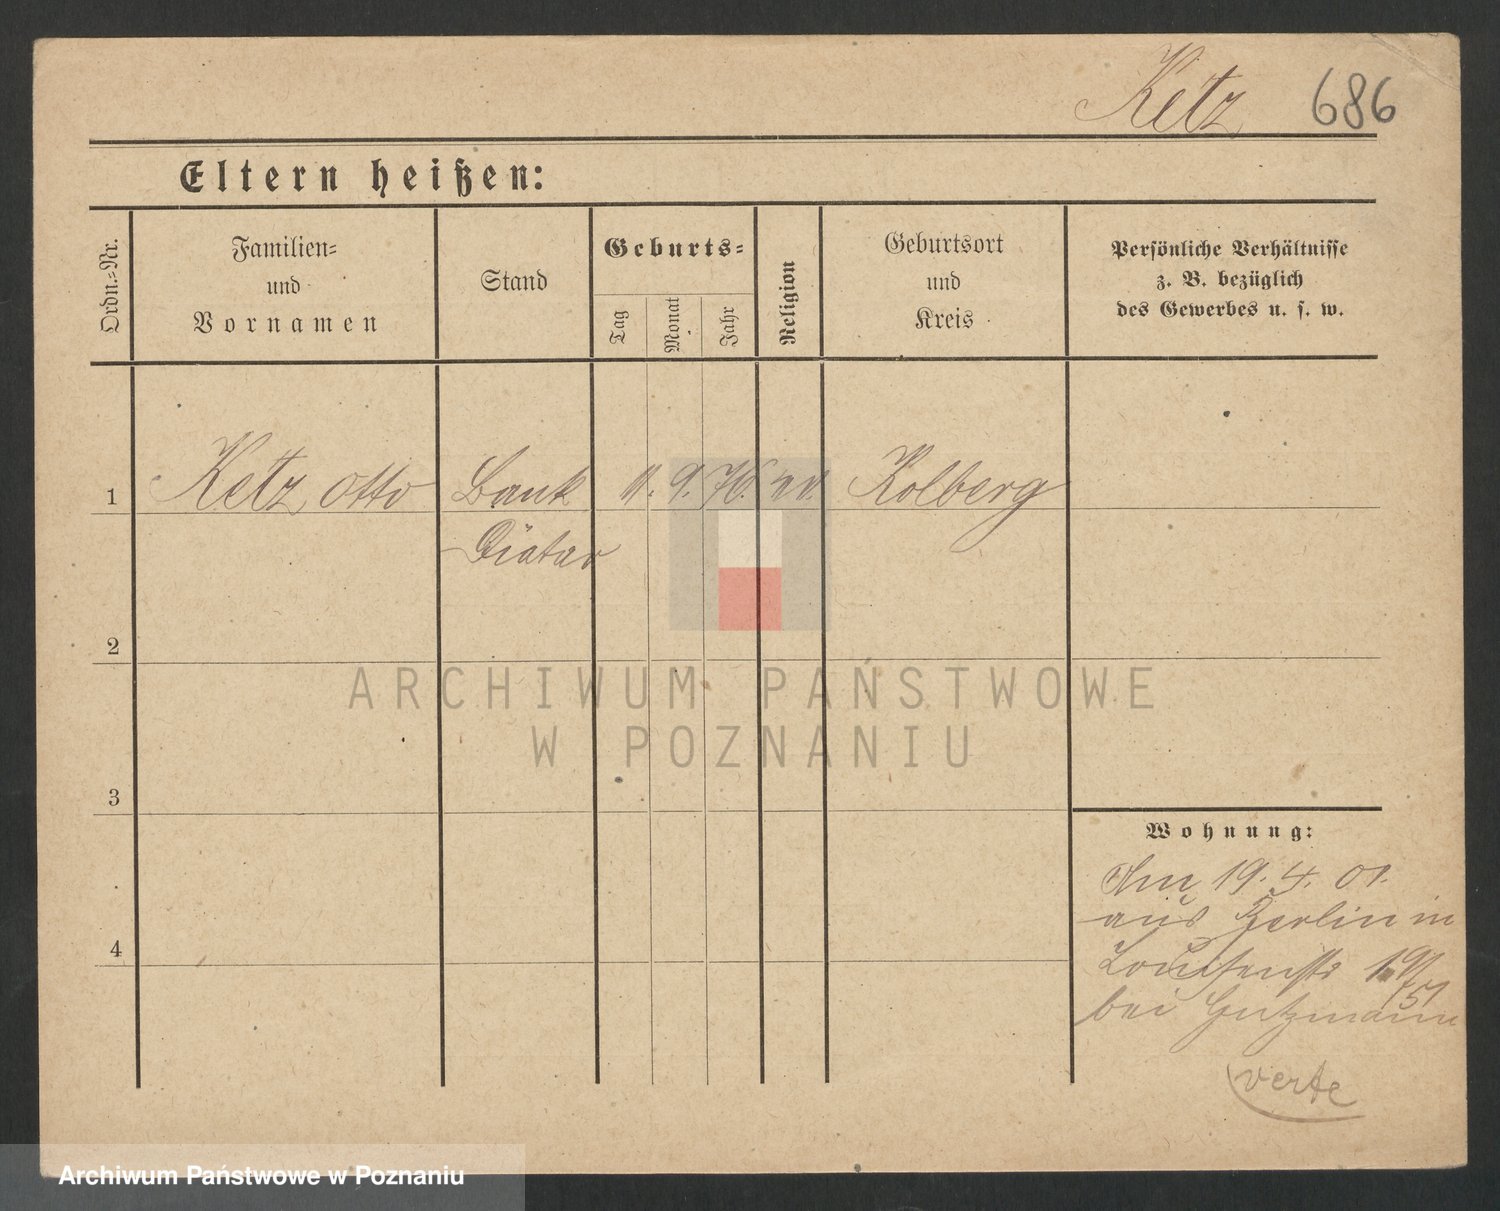 Ketz 686
Eltern heißen:
Ordn.=Nr.
Familien=
und
Vornamen
Stand
Geburts=
Tag
Monat
Jahr
Religion
Geburtsort
und
Kreis
Persönliche Verhältnisse
z. B. bezüglich
des Gewerbes u. s. w.
1 Ketz Otto Bank 11. 9. 76. ev. Kolberg
Diätar
2
3
4
Wohnung:
Am 19. 4. 01.
aus Berlin in
Louisenstr 19
/51
bei Gutzmann
verte
ARCHIWUM PAŃSTWOWE
W POZNANIU
Archiwum Państwowe w Poznaniu